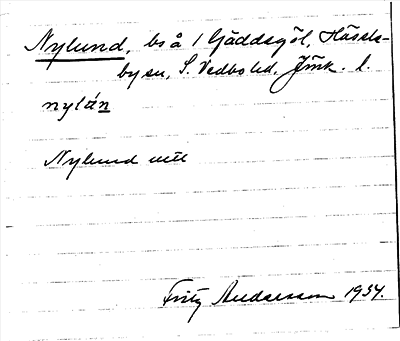 Nylund, bs å 1 Gäddegöl, Hässle-
bysn, S. Vedbo hd, Jönk. l.
nylán
Nylund utt
Fritz Andersson 1934.